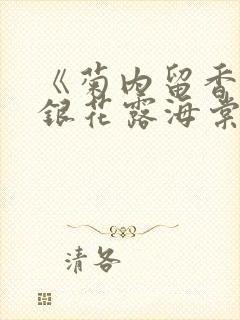 《菊内留香
銀花露海棠
清各